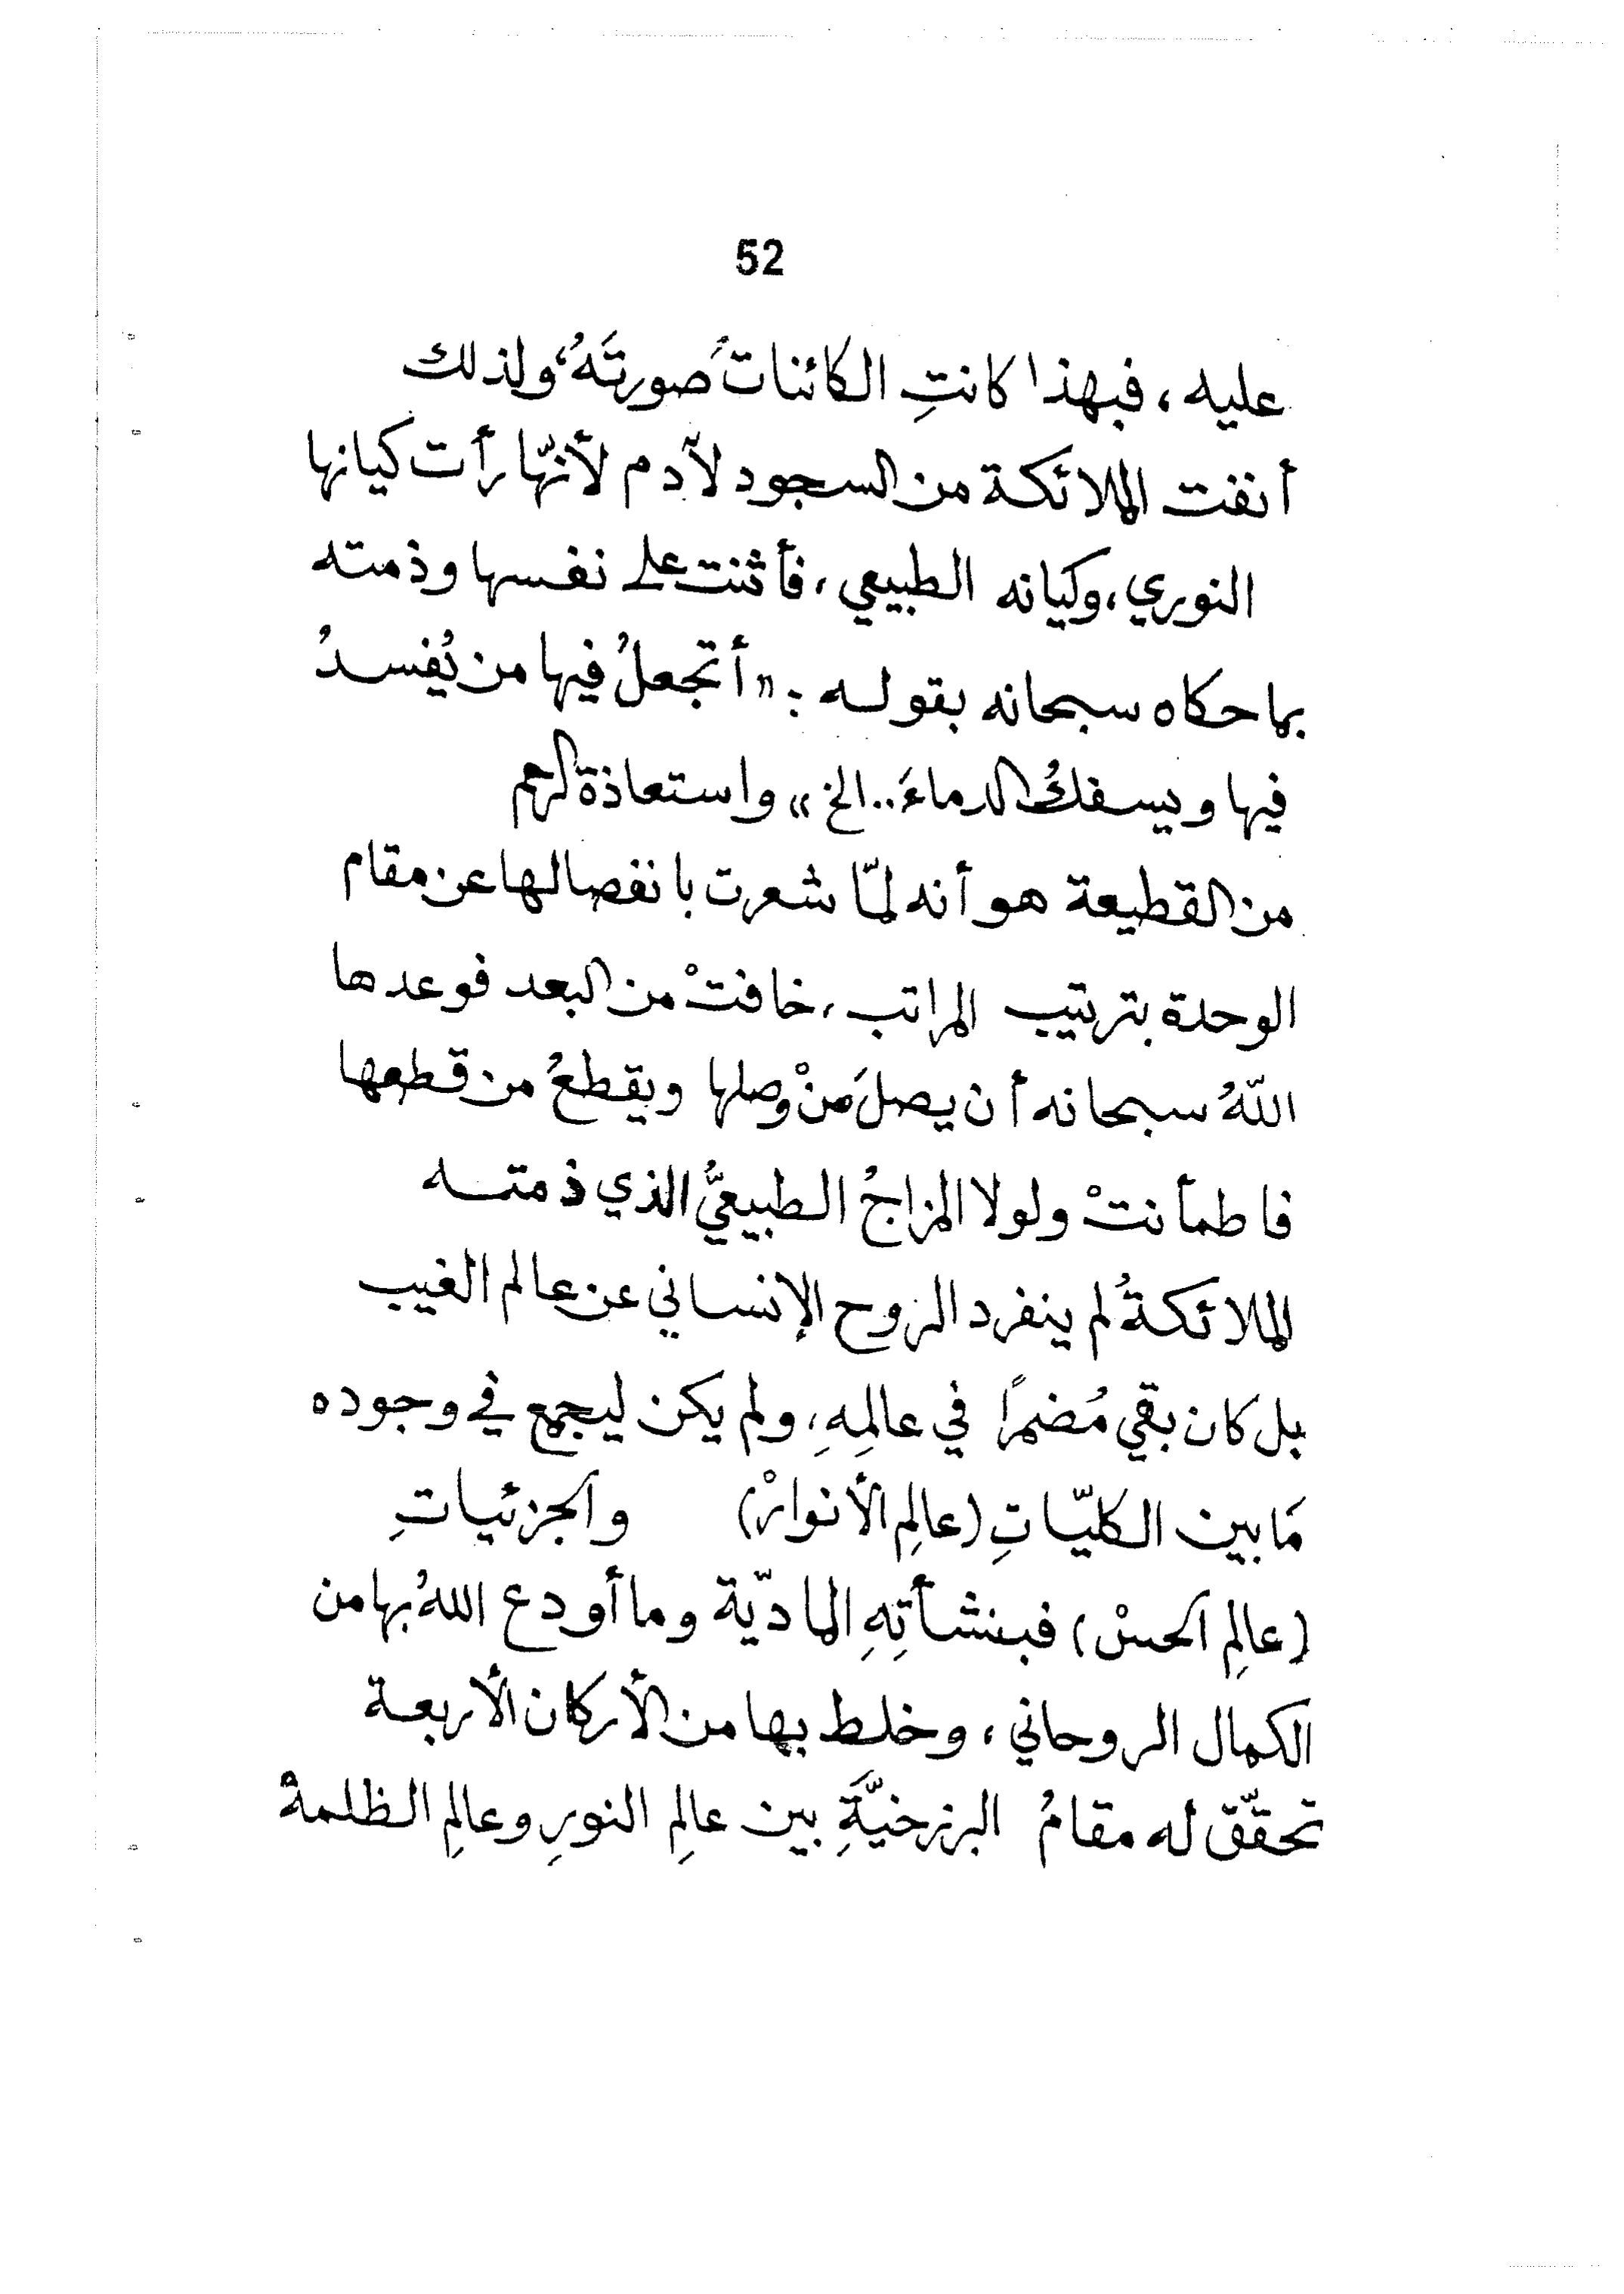 52
عليه، فبهذا كانتِ الكائناتُ صورتَهُ، ولذلك
أنفت الملائكة من السجود لآدم لأنّها رأت كيانها
النوري، وكيانه الطبيعي، فأثنت على نفسها وذمته
بما حكاه سبحانه بقوله : «أتجعلُ فيها من يُفسدُ
فيها ويسفكُ الدماءَ..الخ» واستعاذة الرحم
من القطيعة هو أنه لمّا شعرت بانفصالها عن مقام
الوحدة بترتيب المراتب، خافتْ من البعد فوعدها
اللّهُ سبحانه أن يصلَ منْ وصلها ويقطعُ من قطعها
فاطمأنتْ ولولا المزاجُ الطبيعيُّ الذي ذمته
الملائكةُ لم ينفرد الروح الإنساني عن عالم الغيب
بل كان بقي مُضمرًا في عالمِهِ، ولم يكن ليجمع في وجوده
مَا بين الكليّاتِ (عالمِ الأنوارْ) والجزئياتِ
(عالِمِ الحسْ) فبنشأتِهِ الماديّة وما أودع اللهُ بها من
الكمال الروحاني، وخلط بها من الأركان الأربعة
تحقّق له مقامُ البرزخيَّةِ بين عالمِ النورِ وعالمِ الظلمةْ